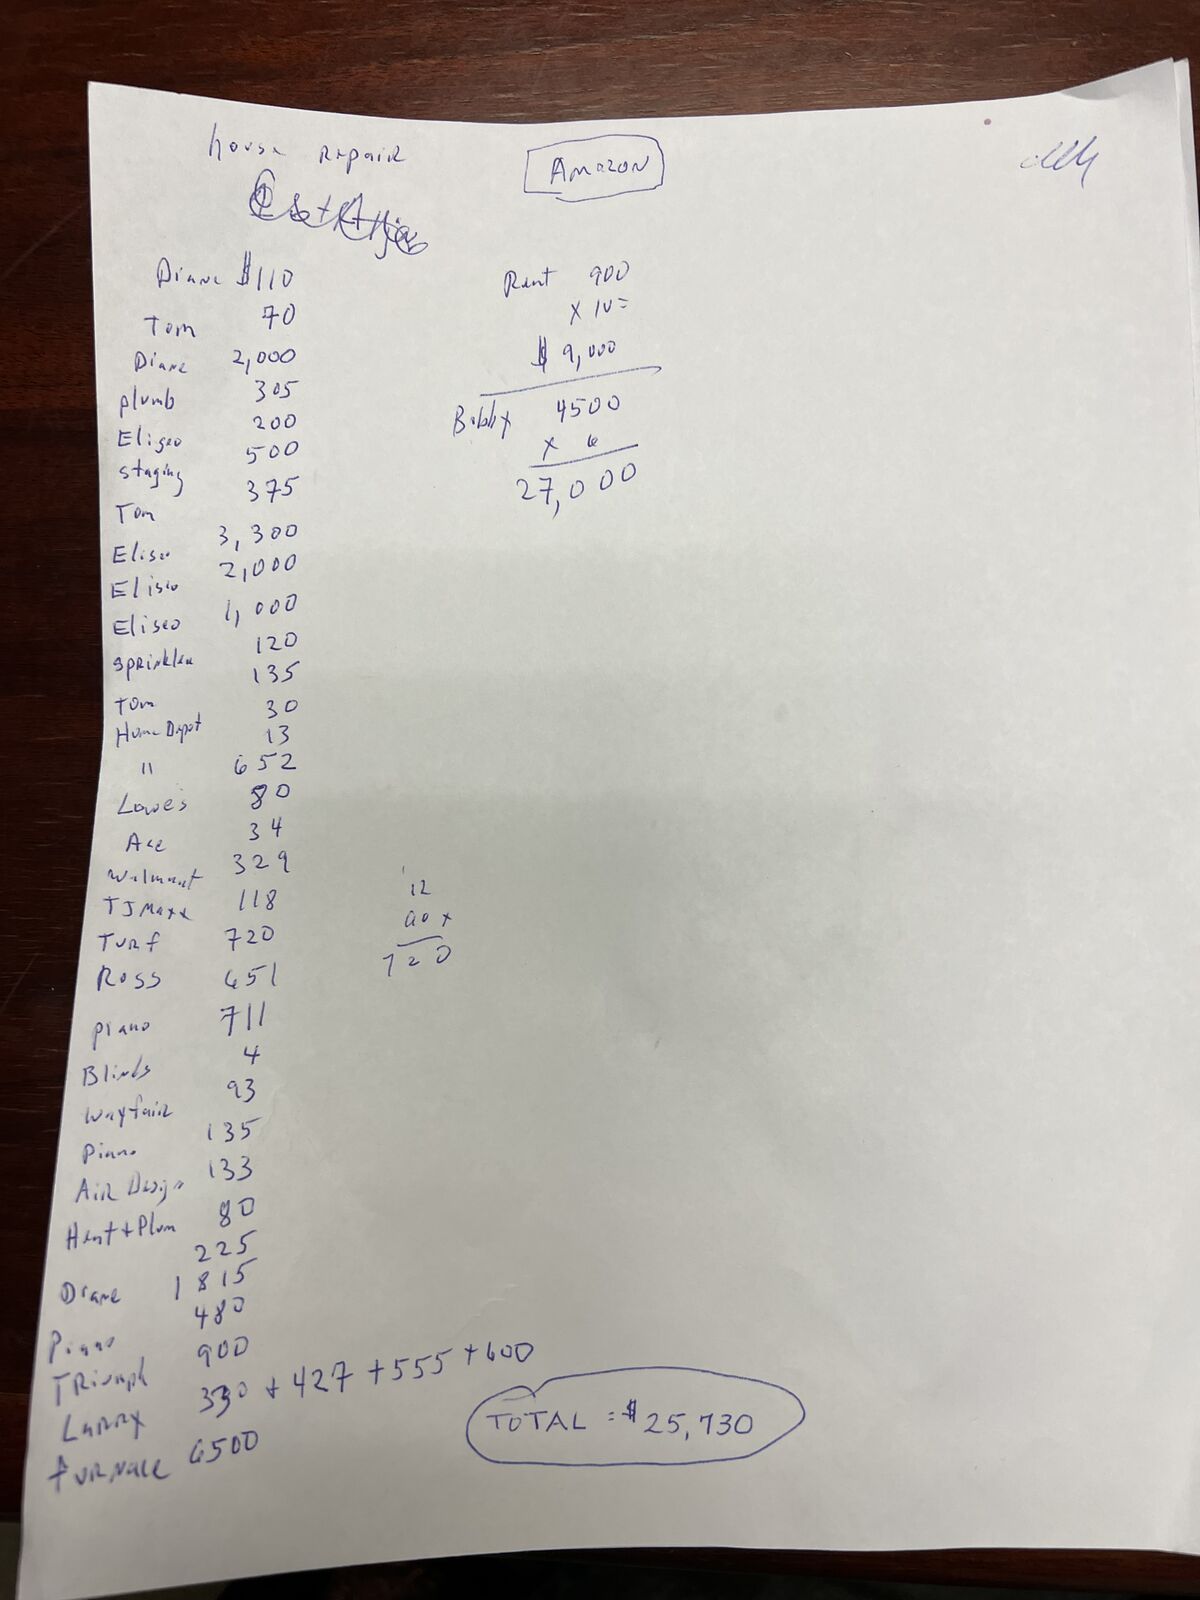 house Repair
AMAZON
Diane $110
Tom 70
Diane 2,000
plumb 305
Eliseo 200
staging 500
Tom 375
Eliseo 3,300
Eliseo 2,000
Eliseo 1,000
sprinkler 120
Tom 135
Home Depot 30
" 13
Lowe's 652
Ace 80
Walmart 34
TJ Maxx 329
Turf 118
Ross 720
piano 651
Blinds 711
wayfair 4
Piano 93
Air Design 135
Heat + Plum 133
80
Diane 225
1815
Piano 480
Triumph 900
Larry 330 + 427 + 555 + 600
furnace 6500
TOTAL = $25,730
Rent 900
x 10 =
$ 9,000
Bobby 4500
x 6
27,000
12
60 x
720